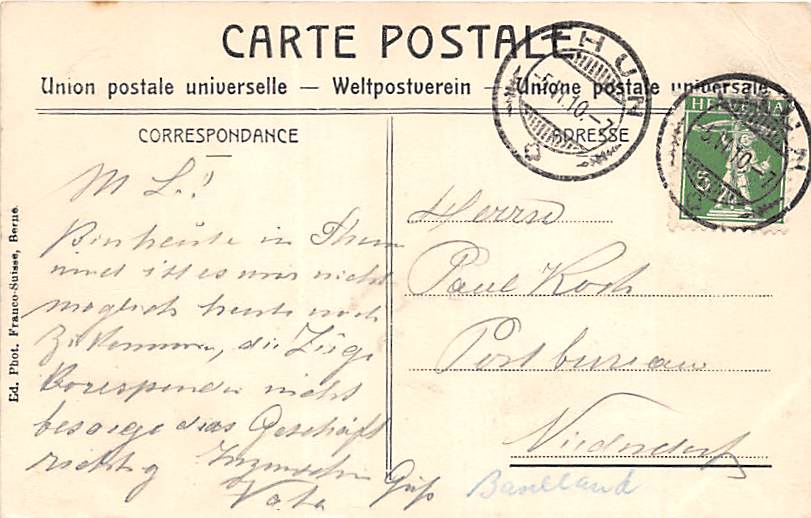 CARTE POSTALE
Union postale universelle — Weltpostverein — Unione postale universale
CORRESPONDANCE
ADRESSE
THUN
-5.VI.10.-7
THUN
-5.VI.10-7
HELVETIA
5
M L.!
Bin heute in Thun
und ist es mir nicht
möglich heute noch
zu kommen, die Züge
Korespondie nicht
besorge das Geschäft
richtig Inzwischen
Gruß
Vater
Herrn
Paul Koch
Postbureau
Niederdorf
Baselland
Ed. Phot. Franco-Suisse, Berne.